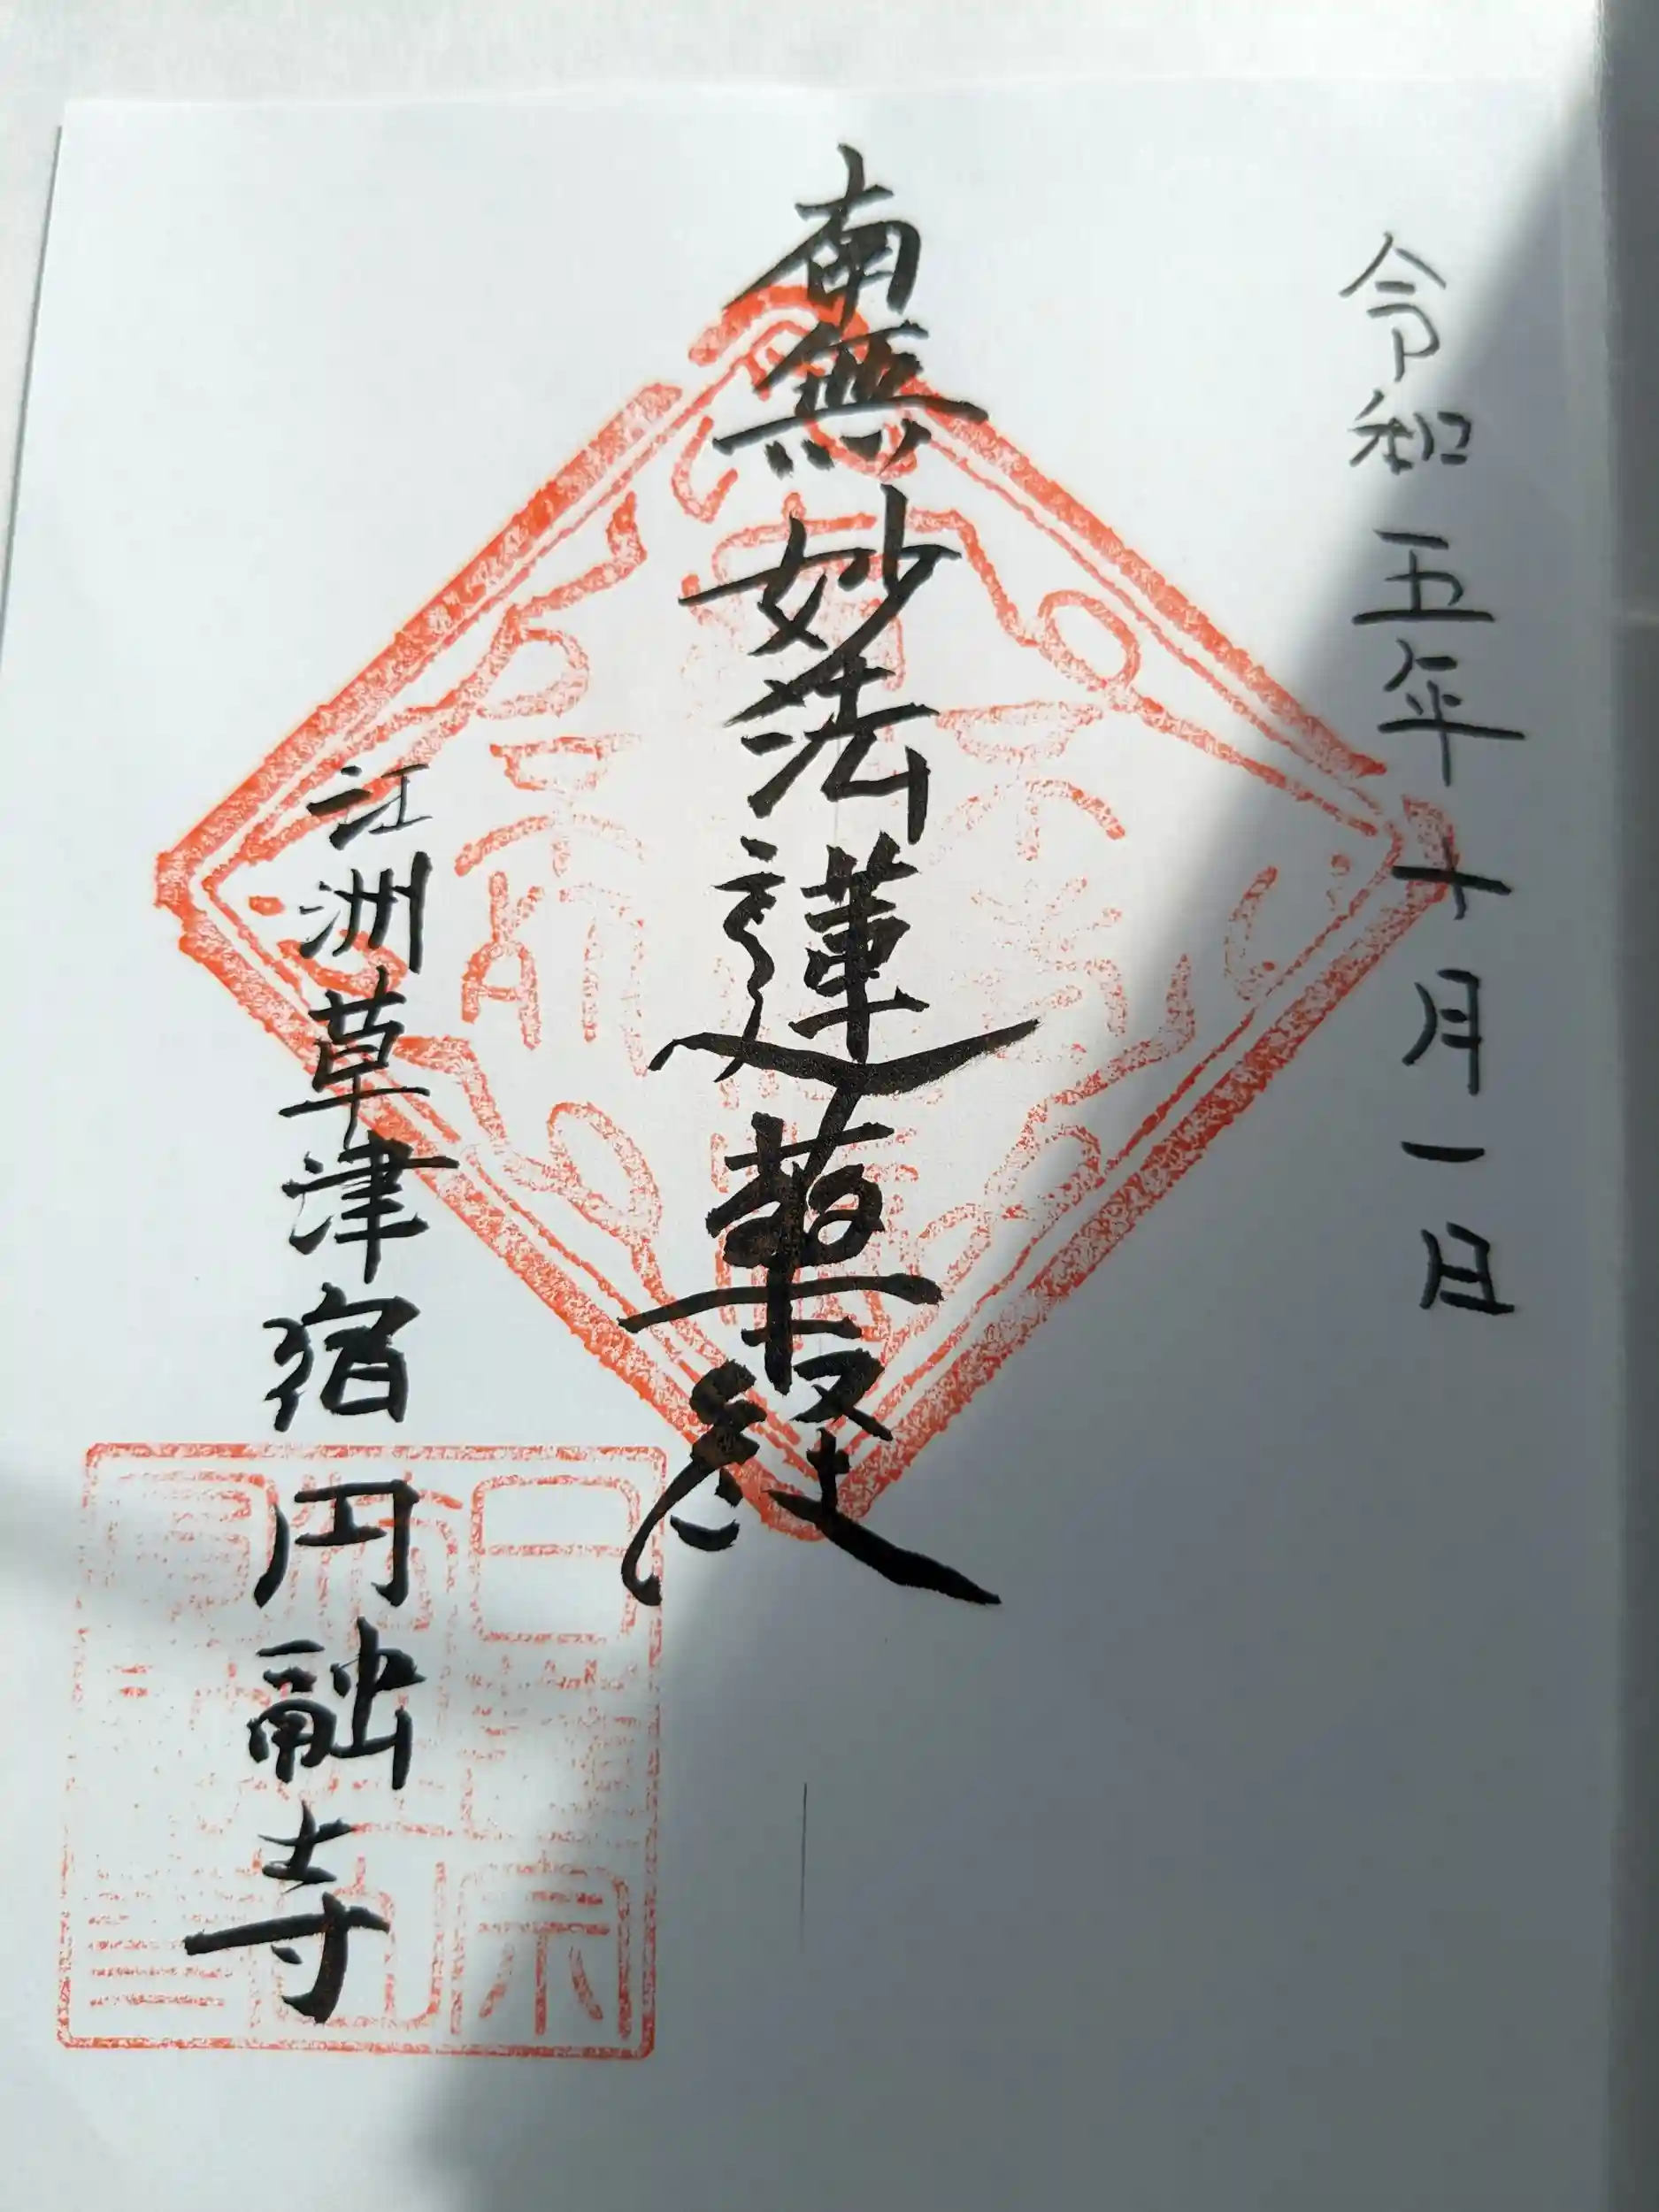 令和五年十月一日
南無妙法蓮華経
江洲草津宿円融寺